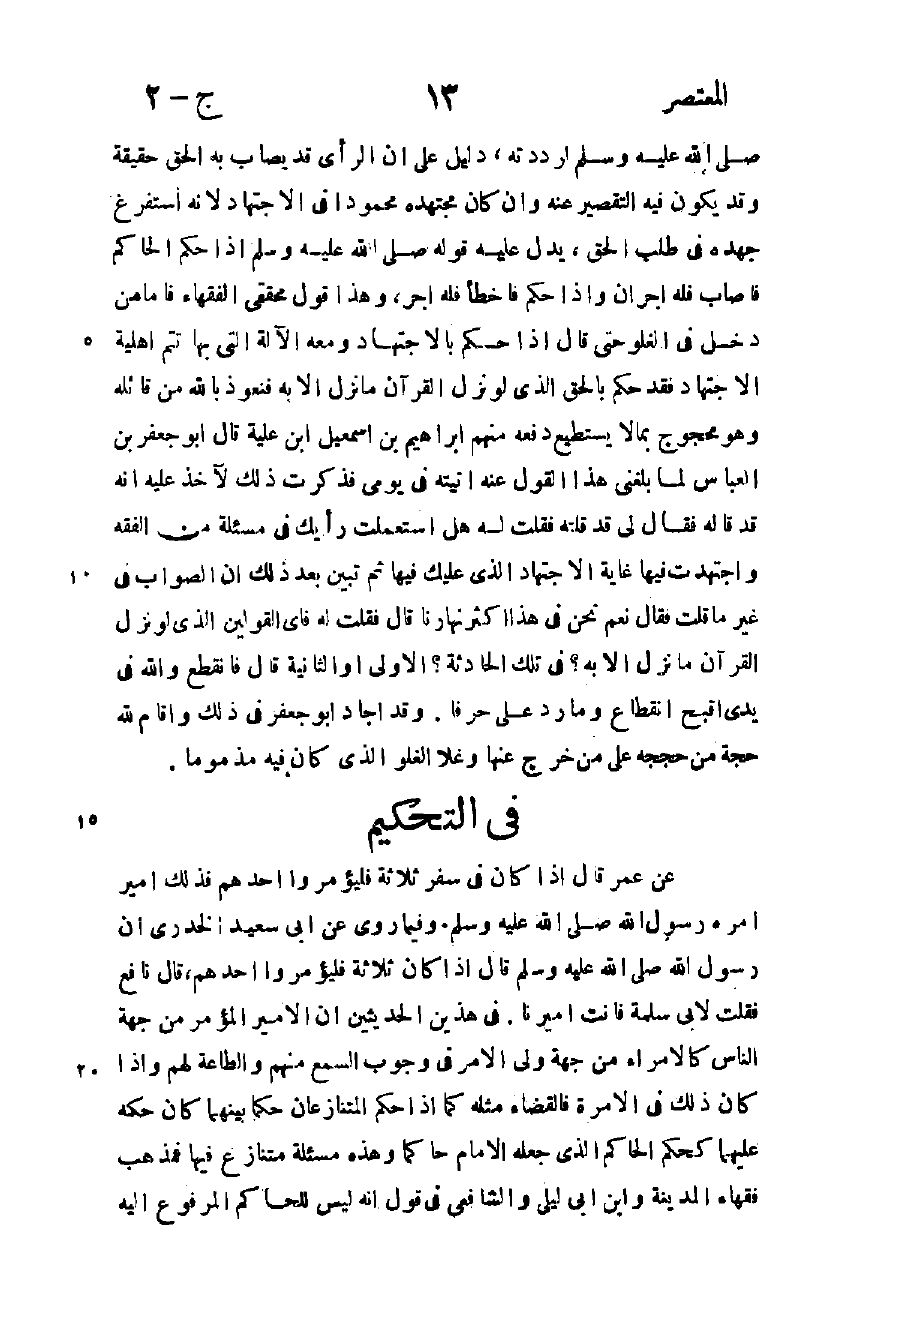 المعتصر ١٣ ج – ٢
صلى الله عليه وسلم لرددته، دليل على ان الرأى قد يصاب به الحق حقيقة
وقد يكون فيه التقصير عنه وان كان مجتهده محمودا فى الاجتهاد لانه أستفرغ
جهده فى طلب الحق، يدل عليه قوله صلى الله عليه وسلم اذا حكم الحاكم
فاصاب فله اجران واذا حكم فاخطأ فله اجر، وهذا قول محققى الفقهاء فاما من
دخل فى الغلو حتى قال اذا حكم بالاجتهاد ومعه الآلة التى بها تتم اهلية ٥
الاجتهاد فقد حكم بالحق الذى لو نزل القرآن ما نزل الا به فنعوذ بالله من قائله
وهو محجوج بما لا يستطيع دفعه منهم ابراهيم بن اسمعيل ابن علية قال ابو جعفر بن
العباس لما بلغنى هذا القول عنه اتيته فى يومى فذكرت ذلك لآخذ عليه انه
قد قاله فقال لى قد قلته فقلت له هل استعملت رأيك فى مسئلة من الفقه
واجتهدت فيها غاية الاجتهاد الذى عليك فيها ثم تبين بعد ذلك ان الصواب فى ١٠
غير ما قلت فقال نعم نحن فى هذا اكثر نهارنا قال فقلت له فاى القولين الذى لو نزل
القرآن ما نزل الا به؟ فى تلك الحادثة؟ الاولى او الثانية قال فانقطع والله فى
يدى اقبح انقطاع وما رد على حرفا . وقد اجاد ابو جعفر فى ذلك واقام لله
حجة من حججه على من خرج عنها وغلا الغلو الذى كان فيه مذموما .
فى التحكيم ١٥
عن عمر قال اذا كان فى سفر ثلاثة فليؤمروا احدهم فذلك امير
امره رسول الله صلى الله عليه وسلم. وفيما روى عن ابى سعيد الخدرى ان
رسول الله صلى الله عليه وسلم قال اذا كان ثلاثة فليؤمروا احدهم، قال نافع
فقلت لابى سلمة فانت اميرنا . فى هذين الحديثين ان الامير المؤمر من جهة
الناس كالامراء من جهة ولى الامر فى وجوب السمع منهم والطاعة لهم واذا ٢٠
كان ذلك فى الامرة فالقضاء مثله كما اذا حكم المتنازعان حكما بينهما كان حكمه
عليهما كحكم الحاكم الذى جعله الامام حاكما وهذه مسئلة متنازع فيها فمذهب
فقهاء المدينة وابن ابى ليلى والشافعى فى قول انه ليس للحاكم المرفوع اليه